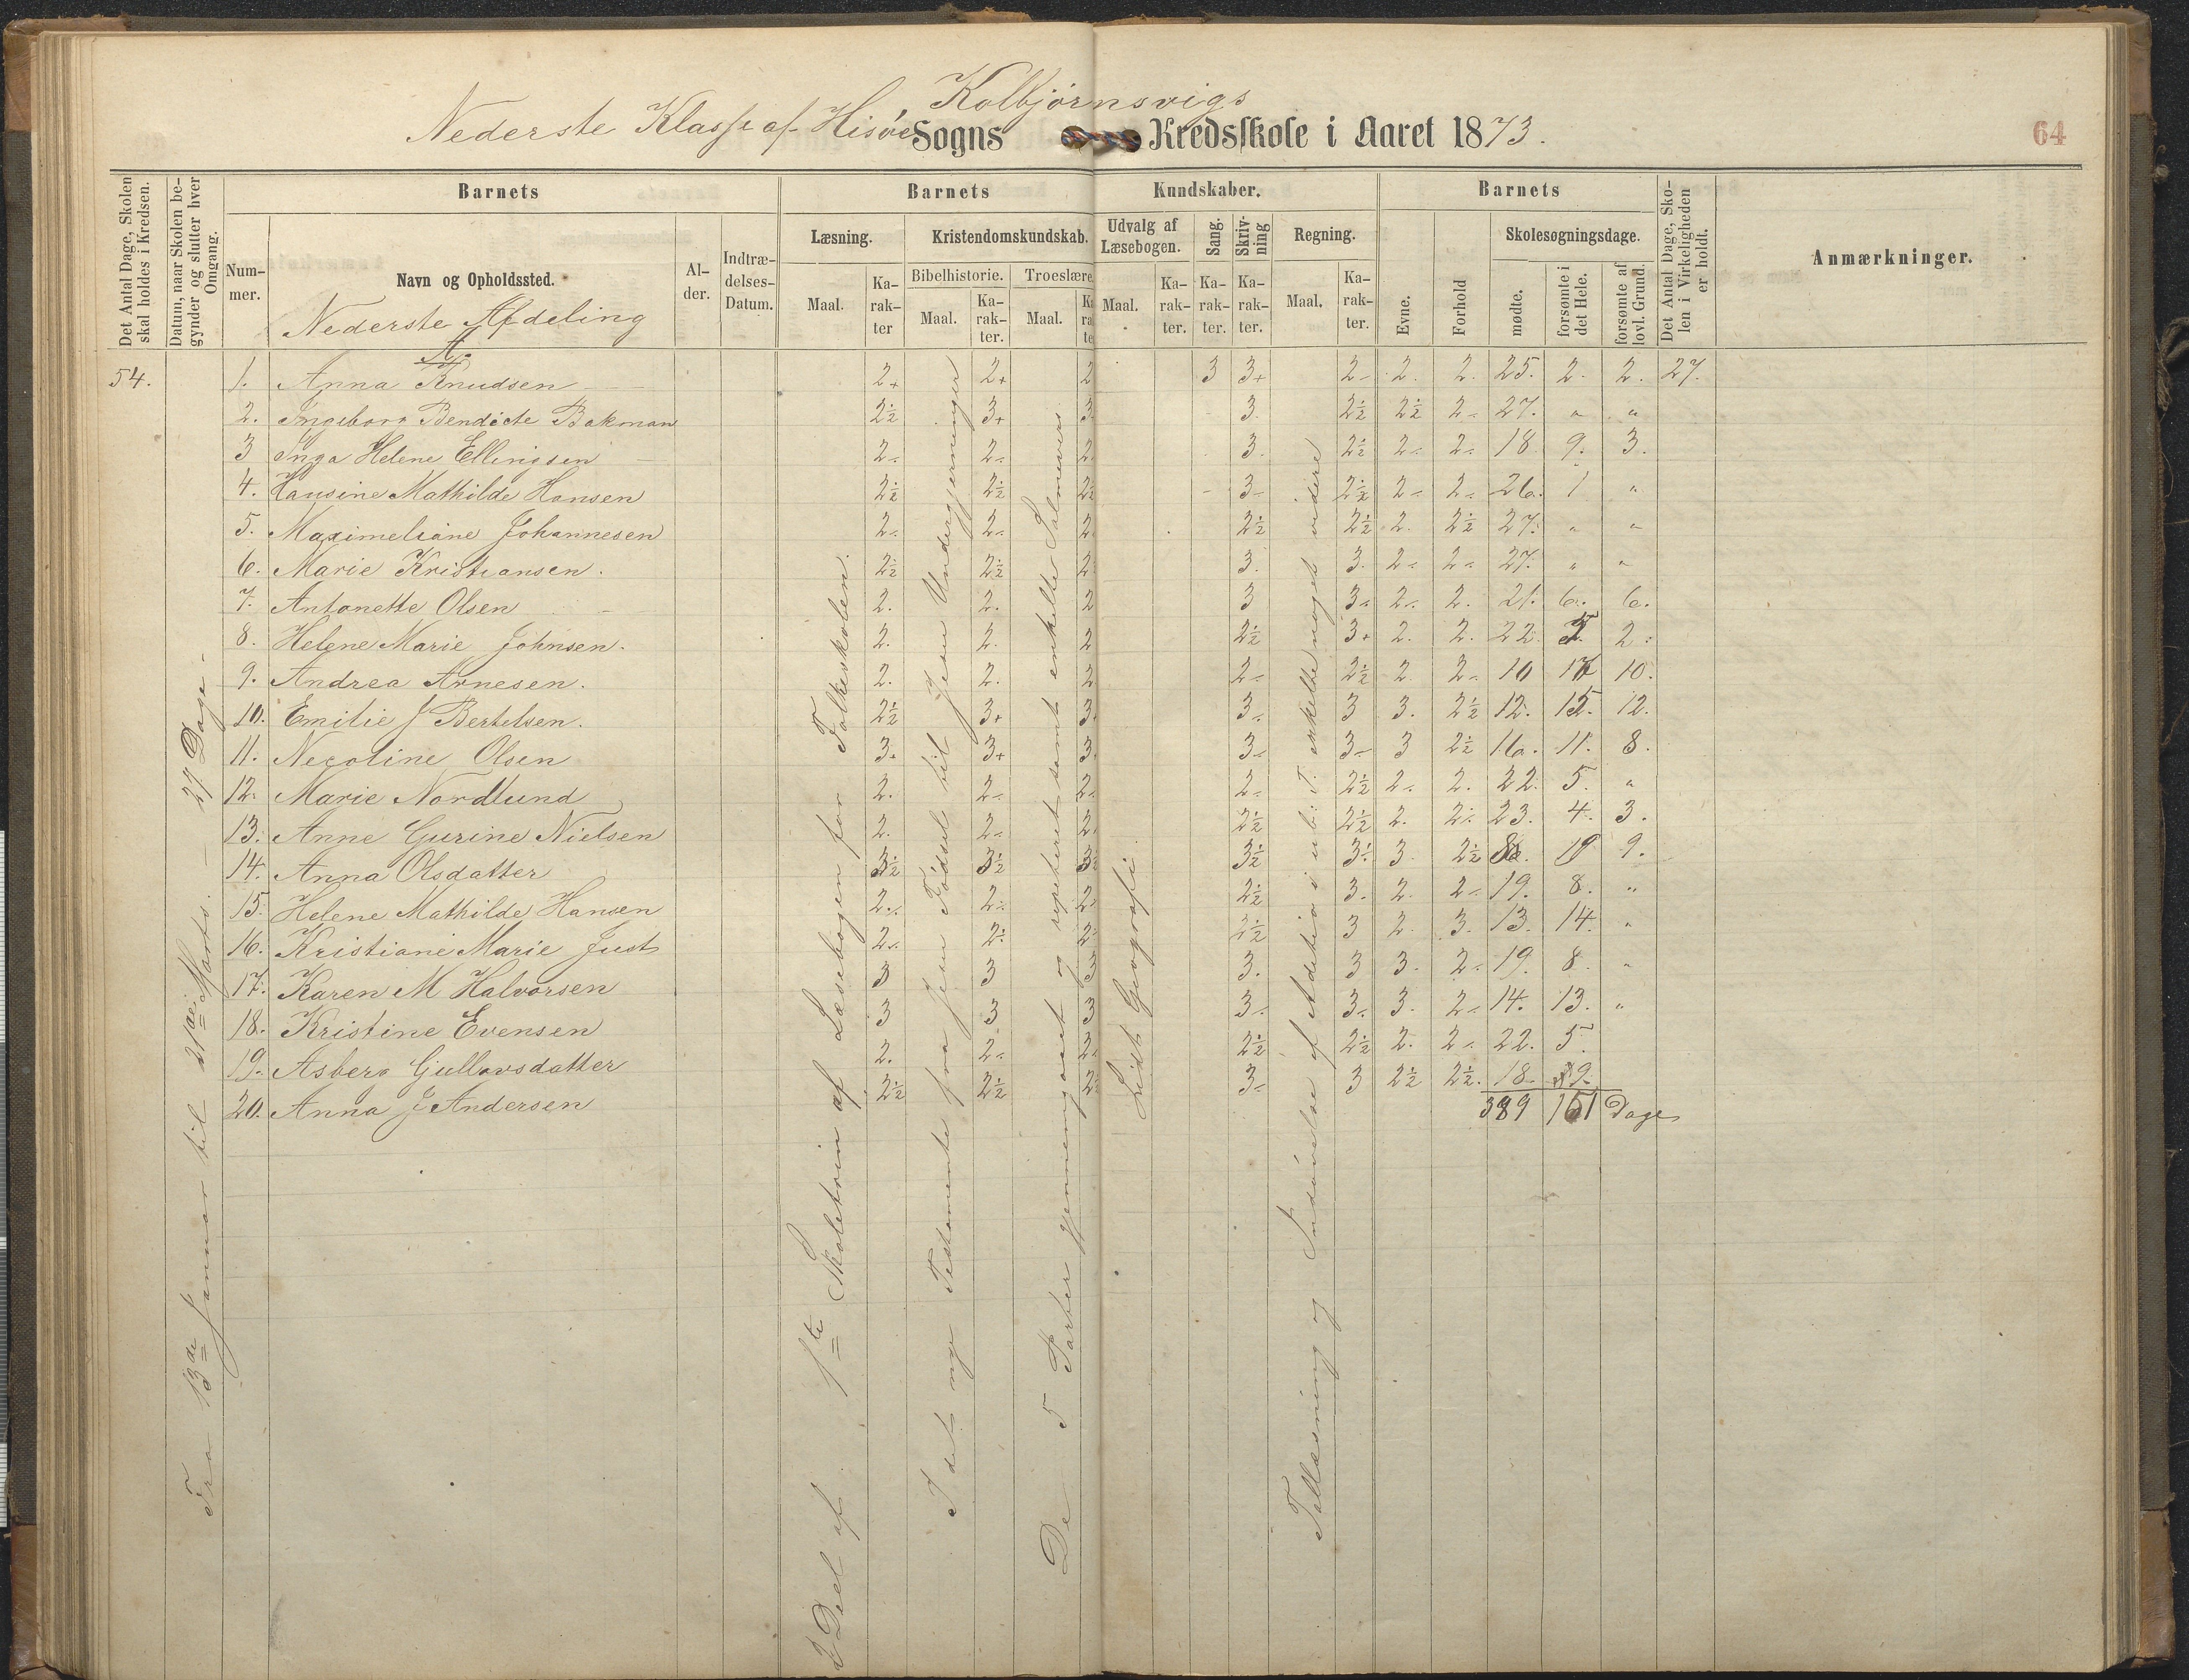 Kolbjørnsvigs
Nederste Klasse af Hisøe Sogns Kredsskole i Aaret 1873.
64
Det Antal Dage, Skolen skal holdes i Kredsen.
Datum, naar Skolen begynder og slutter hver Omgang.
Barnets
Barnets
Kundskaber.
Barnets
Det Antal Dage, Skolen i Virkeligheden er holdt.
Anmærkninger.
Nummer.
Navn og Opholdssted.
Alder.
Indtrædelses-Datum.
Læsning.
Kristendomskundskab.
Udvalg af Læsebogen.
Sang.
Skrivning
Regning.
Evne.
Forhold
Skolesøgningsdage.
Bibelhistorie.
Troeslære
Maal. Karakter Maal. Karakter. Maal. Maal. Karakter. Karakter. Karakter. Maal. Karakter.
mødte.
forsømte i det Hele.
forsømte af lovl. Grund.
Nederste Afdeling
A.
54. 1. Anna Knudsen 2+ 2+ 2 3 3+ 2- 2. 2. 25. 2. 2. 27.
2. Ingeborg Bendicte Bakman 2½ 3+ 3. 3. 2½ 2½ 2- 27. " "
3 Inga Helene Ellingsen 2- 2- 2. 3. 2½ 2- 2- 18 9. 3.
4. Hansine Mathilde Hansen 2½ 2½ 2½ 3- 2½ 2- 2- 26. 1 "
5. Maximeliane Johannesen 2- 2- 2 2½ 2½ 2. 2½ 27. " "
6. Marie Kristiansen. 2½ 2½ 2 3. 3. 2- 2- 27. " "
7. Antonette Olsen 2. 2. 2 3 3- 2- 2. 21. 6. 6.
8. Helene Marie Johnsen. 2. 2. 2 2½ 3+ 2. 2. 22. 5. 2.
9. Andrea Arnesen. 2. 2. 2 2- 2½ 2. 2- 10 17 10.
10. Emilie J Bertelsen. 2½ 3+ 3+ 3- 3 3. 2½ 12. 15. 12.
11. Necoline Olsen 3+ 3+ 3. 3- 3- 3 2½ 16. 11. 8.
12. Marie Nordlund 2. 2- 2- 2- 2½ 2- 2. 22. 5. "
13. Anne Gurine Nielsen 2. 2- 2. 2½ 2½ 2. 2- 23. 4. 3.
14. Anna Olsdatter 3½ 3½ 3½ 3½ 3- 3. 2½ 8. 19 9.
15. Helene Mathilde Hansen 2- 2- 2- 2½ 3. 2. 2- 19. 8. "
16. Kristiane Marie Just 2- 2- 2- 2½ 3 2. 3. 13. 14. "
17. Karen M Halvorsen 3 3 3 3. 3 3. 2- 19. 8. "
18. Kristine Evensen 3 3 3 3- 3- 3. 2- 14. 13. "
19. Asberg Gullovsdatter 2. 2- 2- 2½ 2½ 2. 2- 22. 5.
20. Anna J Andersen 2½ 2½ 2½ 3- 3 2½ 2½. 18. 9.
389 151 Dage
Fra 13de Januar til 21de Marts. — 27 Dage -
2 Deel af 1ste Skoletrin af Læsebogen for Folkeskolen.
I det nye Testamente fra Jesu Fødsel til Jesu Undergjerninger
De 5 Parter gjennemgaaet og repeteret samt enkelte Salmevers.
Lidt Geografi.
Tallæsning og Indøvelse af Adition i ub: T. enkelte noget videre